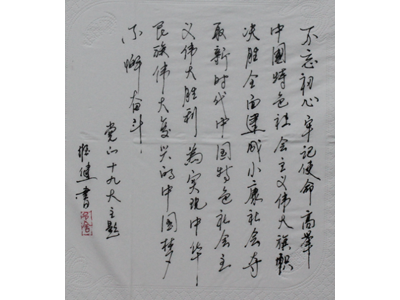 不忘初心牢记使命高举
中国特色社会主义伟大旗帜
决胜全面建成小康社会夺
取新时代中国特色社会主
义伟大胜利为实现中华
民族伟大复兴的中国梦
不懈奋斗
党的十九大主题
书